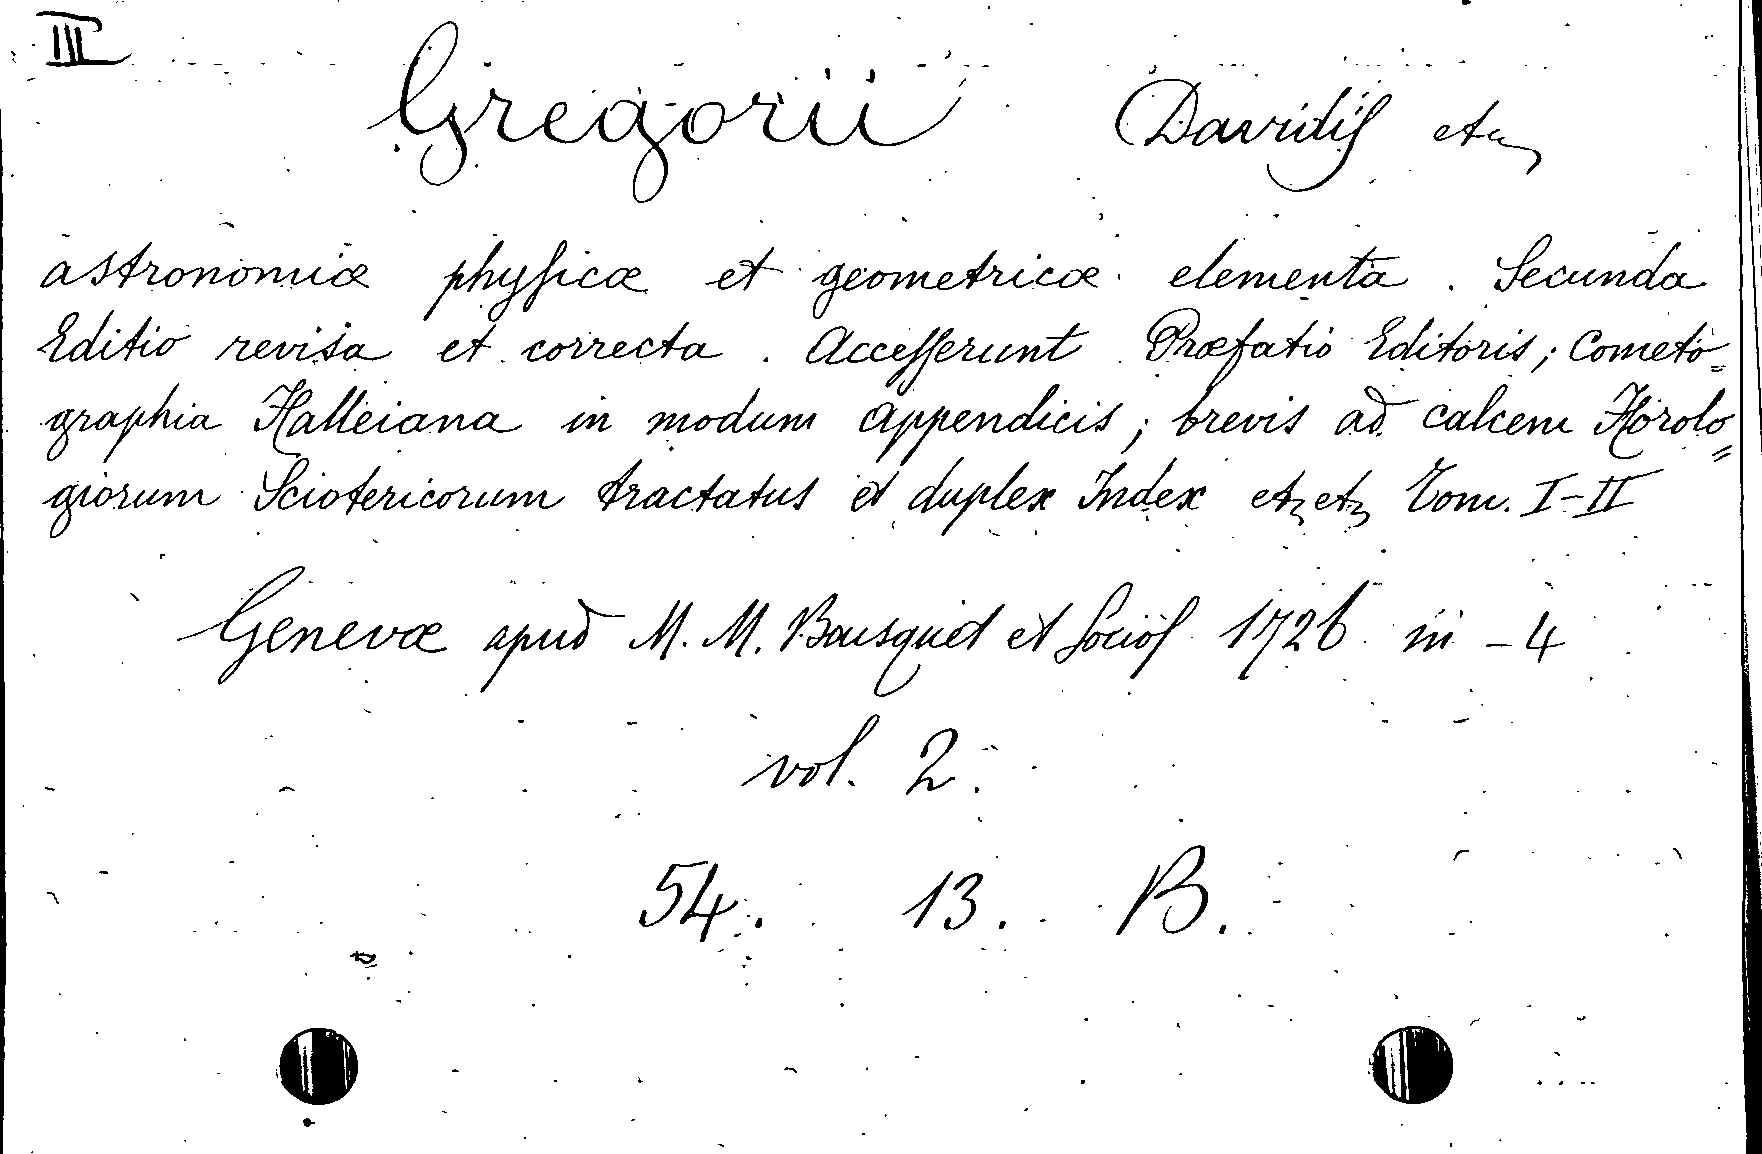 III
Gregorii Davidis etc
astronomiæ physicæ et geometricæ elementa. Secunda
Editio revisa et correcta. Accesserunt Præfatio Editoris; Cometo=
graphia Halleiana in modum appendicis; brevis ad calcem Horolo=
giorum Sciotericorum tractatus et duplex Index etc etc Tom. I-II
Genevæ apud M. M. Bousquet et Socios 1726 in -4
vol. 2.
54. 13. B.